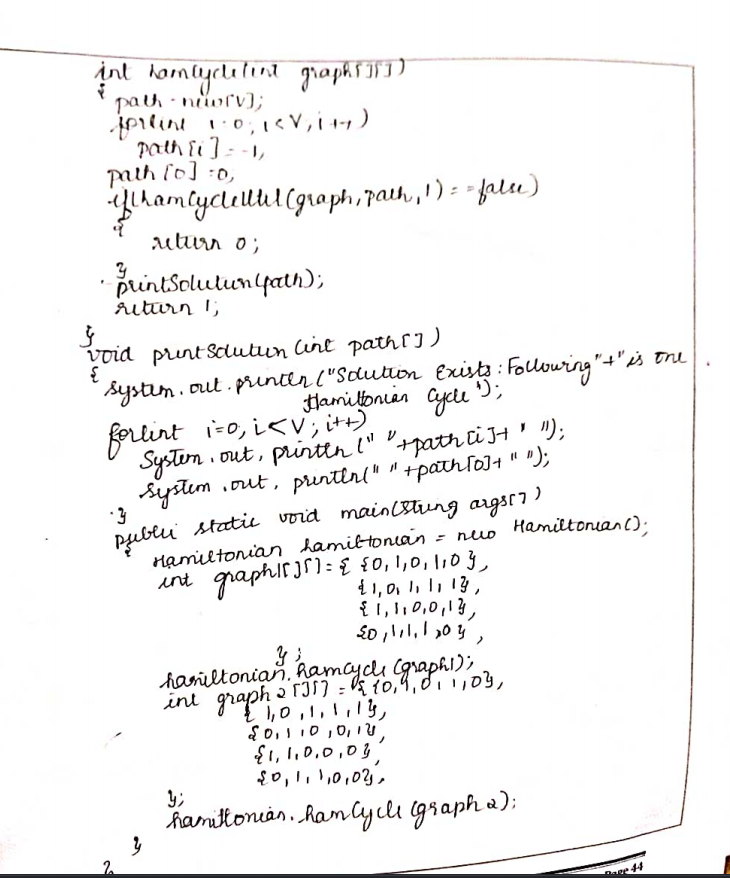 int hamCycle(int graph[][])
{
path = new[V];
for(int i=0; i<V, i++)
path[i] = -1,
path[0] =0,
if(hamCycleUtil(graph, path, 1) = =false)
{
return 0;
}
printSolution(path);
return 1;
}
void printSolution (int path[])
{
System.out.println ("Solution Exists: Following"+"is one
Hamiltonian Cycle");
for(int i=0, i<V; i++)
System.out, println (" "+path[i]+ " ");
System.out, println(" "+path[0]+ " ");
}
public static void main(String args[])
{ Hamiltonian hamiltonian = new Hamiltonian();
int graph1[][]= { {0,1,0,1,0},
{1,0,1,1,1},
{1,1,0,0,1},
{0,1,1,1,0},
};
hamiltonian.hamCycle (graph1);
int graph2[][] = {{0,1,0,1,0},
{1,0,1,1,1},
{0,1,0,0,1},
{1,1,0,0,0},
{0,1,1,0,0},
};
hamiltonian.hamCycle (graph2);
}
}
Page 44